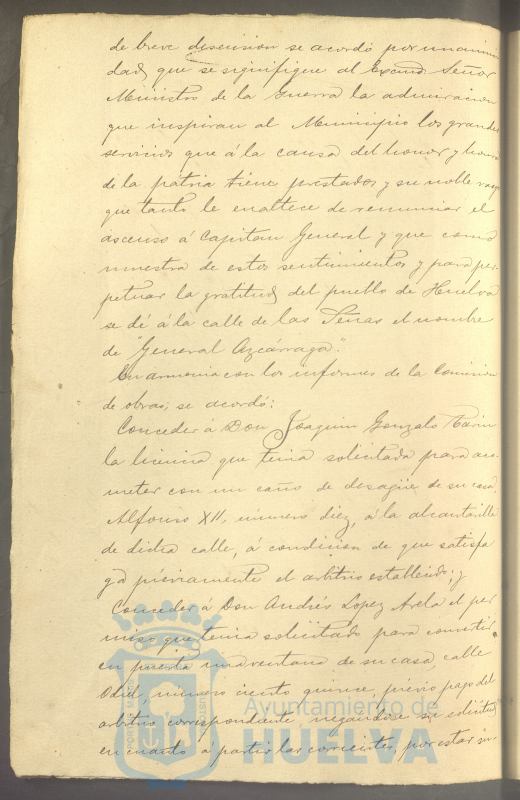 de breve discusion se acordó por unanimi
dad, que se signifique al Excmo. Señor
Ministro de la Guerra la admiracion
que inspiran al Municipio los grandes
servicios que á la causa del honor y honra
de la pátria tiene prestados y su noble rasgo
que tanto le enaltece de renunciar el
ascenso á Capitan General y que como
muestra de estos sentimientos y para per-
petuar la gratitud del pueblo de Huelva
se dé á la calle de las Señas el nombre
de "General Azcárraga".
En armonia con los informes de la Comision
de obras; se acordó:
Conceder á Don Joaquin Gonzalo Tarin
la licencia que tenia solicitada para aco-
meter con un caño de desagüe de su casa
Alfonso XII, número diez, á la alcantarilla
de dicha calle, á condicion de que satisfa
ga préviamente el arbitrio establecido; y
Conceder á Don Andrés Lopez Avela el per
miso que tenia solicitado para convertir
en puerta una ventana de su casa calle
Odiel, número ciento quince, prévio pago del
arbitrio correspondiente, negandose su solicitud
en cuanto á partir las corrientes, por estar
Ayuntamiento de
HUELVA